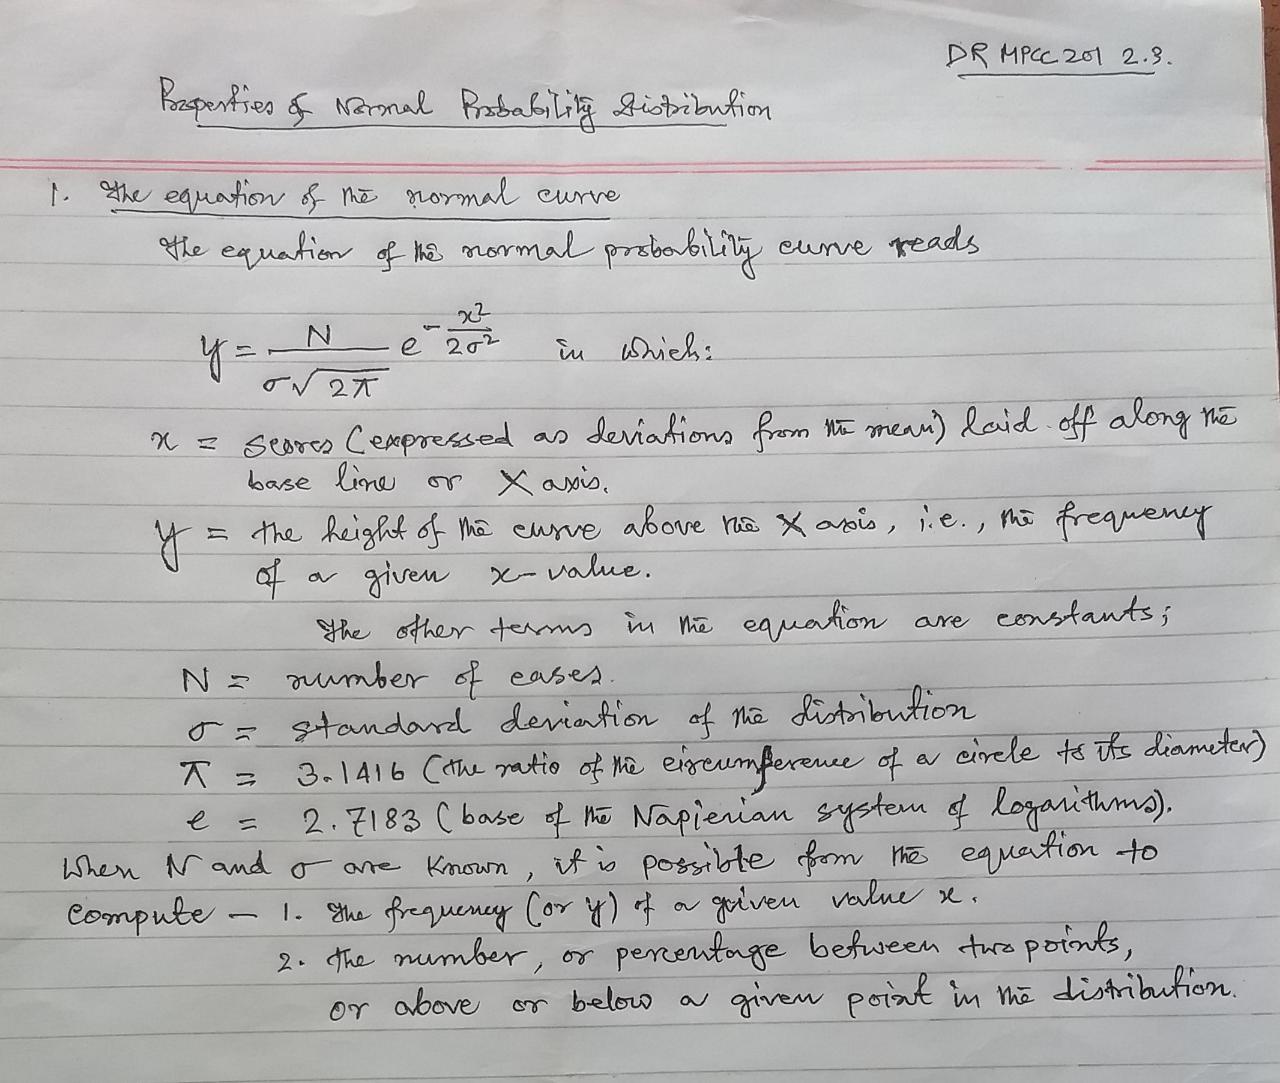 DR MPCC 201 2.3.
Properties of Normal Probability Distribution
1. The equation of the normal curve
The equation of the normal probability curve reads
y = N / σ√2π e^-x²/2σ² in which:
x = scores (expressed as deviations from the mean) laid off along the
base line or X axis.
y = the height of the curve above the X axis, i.e., the frequency
of a given x-value.
The other terms in the equation are constants;
N = number of cases.
σ = standard deviation of the distribution
π = 3.1416 (the ratio of the circumference of a circle to its diameter)
e = 2.7183 (base of the Napierian system of logarithms).
When N and σ are known, it is possible from the equation to
compute - 1. The frequency (or y) of a given value x.
2. The number, or percentage between two points,
or above or below a given point in the distribution.